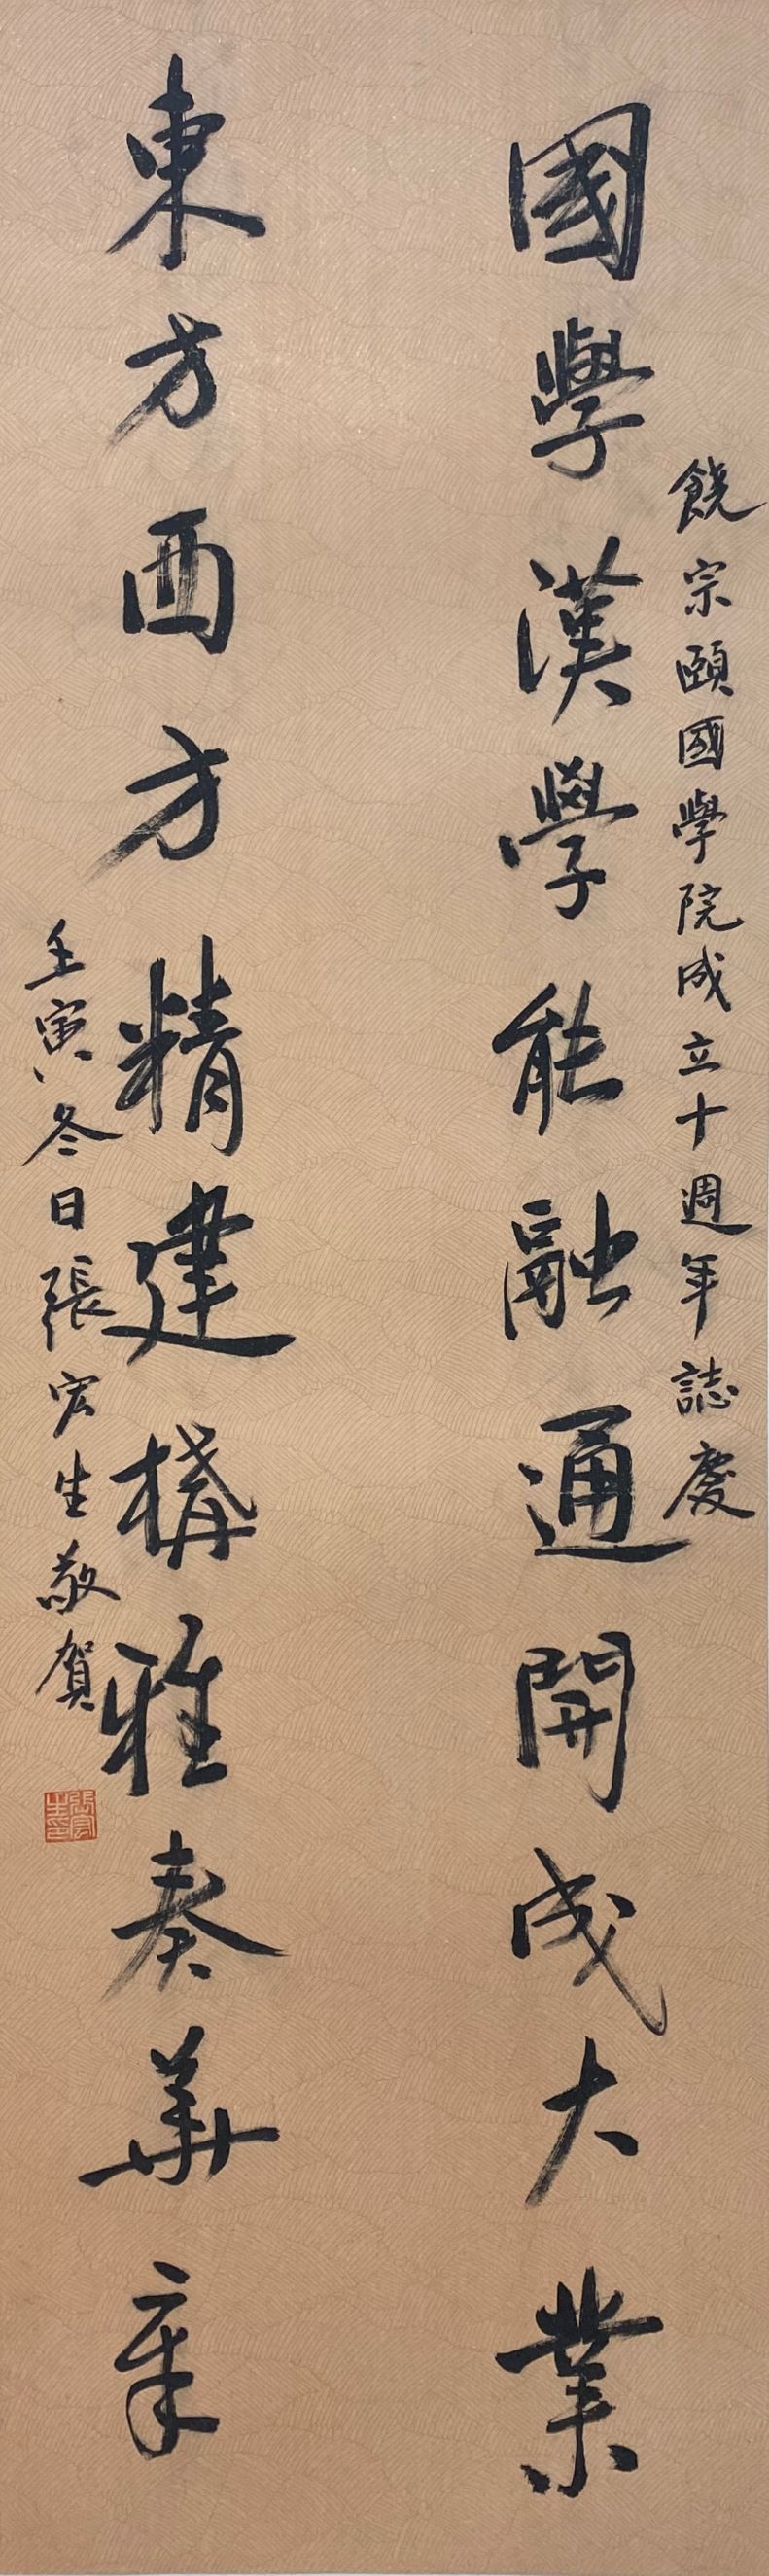 饒宗頤國學院成立十週年誌慶
國學漢學能融通開成大業
東方西方精建構雅奏華章
壬寅冬日張宏生敬賀
張宏生印